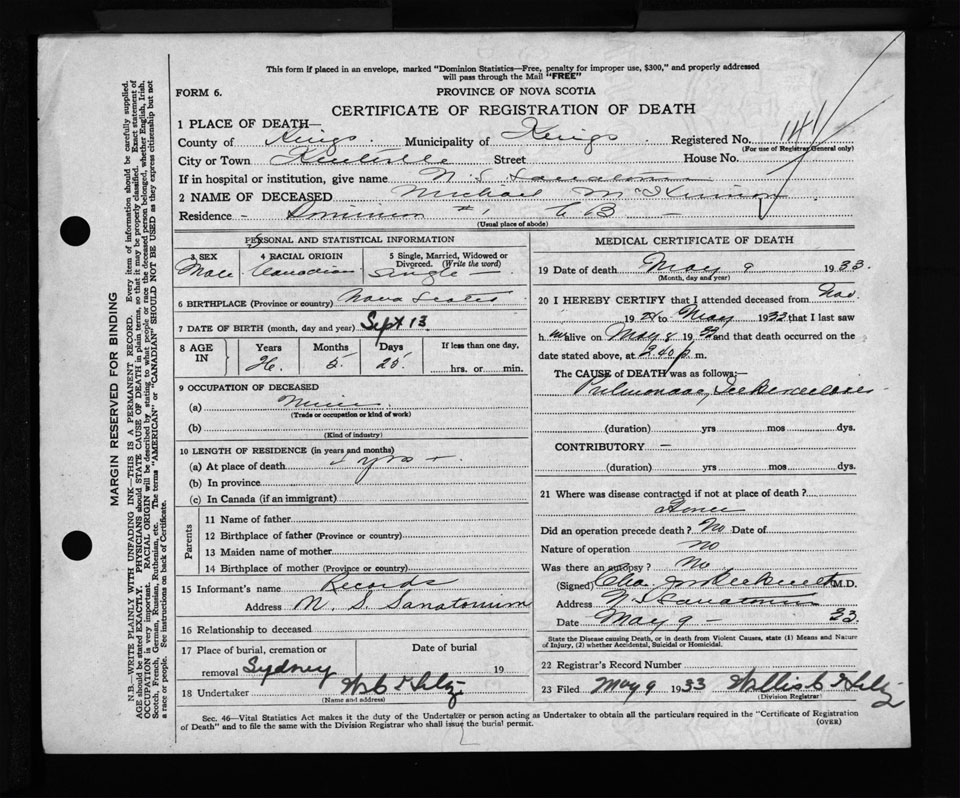 This form if placed in an envelope, marked "Dominion Statistics—Free, penalty for improper use, $300," and properly addressed
will pass through the Mail "FREE"
FORM 6.
PROVINCE OF NOVA SCOTIA
CERTIFICATE OF REGISTRATION OF DEATH
1 PLACE OF DEATH—
County of Kings. Municipality of Kings. Registered No. 141
(For use of Registrar General only)
City or Town Kentville Street House No.
If in hospital or institution, give name N S Sanatorium
2 NAME OF DECEASED Michael McKinnon
Residence - Dominion #1 C B -
(Usual place of abode)
PERSONAL AND STATISTICAL INFORMATION
3 SEX Male
4 RACIAL ORIGIN Canadian
5 Single, Married, Widowed or
Divorced. (Write the word)
Single
6 BIRTHPLACE (Province or country) Nova Scotia
7 DATE OF BIRTH (month, day and year) Sept 13
8 AGE IN
Years Months Days If less than one day,
26. 5. 25. hrs. or min.
9 OCCUPATION OF DECEASED
(a) Miner
(Trade or occupation or kind of work)
(b)
(Kind of industry)
10 LENGTH OF RESIDENCE (in years and months)
(a) At place of death yrs +
(b) In province
(c) In Canada (if an immigrant)
Parents
11 Name of father
12 Birthplace of father (Province or country)
13 Maiden name of mother
14 Birthplace of mother (Province or country)
15 Informant's name Records
Address N. S. Sanatorium
16 Relationship to deceased
17 Place of burial, cremation or
removal Sydney
Date of burial
19
18 Undertaker
(Name and address)
MEDICAL CERTIFICATE OF DEATH
19 Date of death May 9 1933.
(Month, day and year)
20 I HEREBY CERTIFY that I attended deceased from Nov
19 to May 193 that I last saw
h im alive on May 8 19 and that death occurred on the
date stated above, at 9.40 p. m.
The CAUSE of DEATH was as follows:—
Pulmonary Tuberculosis
(duration) yrs mos dys.
CONTRIBUTORY —
(duration) yrs mos dys.
21 Where was disease contracted if not at place of death?
Home
Did an operation precede death? No Date of
Nature of operation no
Was there an autopsy? No
(Signed) M.D.
Address N S Sanatorium
Date May 9 - 33
State the Disease causing Death, or in death from Violent Causes, state (1) Means and Nature
of Injury, (2) whether Accidental, Suicidal or Homicidal.
22 Registrar's Record Number
23 Filed May 9 1933
(Division Registrar)
Sec. 46—Vital Statistics Act makes it the duty of the Undertaker or person acting as Undertaker to obtain all the particulars required in the "Certificate of Registration
of Death" and to file the same with the Division Registrar who shall issue the burial permit.
(OVER)
MARGIN RESERVED FOR BINDING
N.B.—WRITE PLAINLY WITH UNFADING INK—THIS IS A PERMANENT RECORD. Every item of information should be carefully supplied.
AGE should be stated EXACTLY. PHYSICIANS should STATE CAUSE OF DEATH in plain terms, so that it may be properly classified. Exact statement of
OCCUPATION is very important. RACIAL ORIGIN will be described by stating to what people or race the deceased person belonged, whether English, Irish,
Scotch, French, German, Russian, Ruthenian, etc. The terms "AMERICAN" or "CANADIAN" SHOULD NOT BE USED as they express citizenship but not
a race or people. See instructions on back of Certificate.